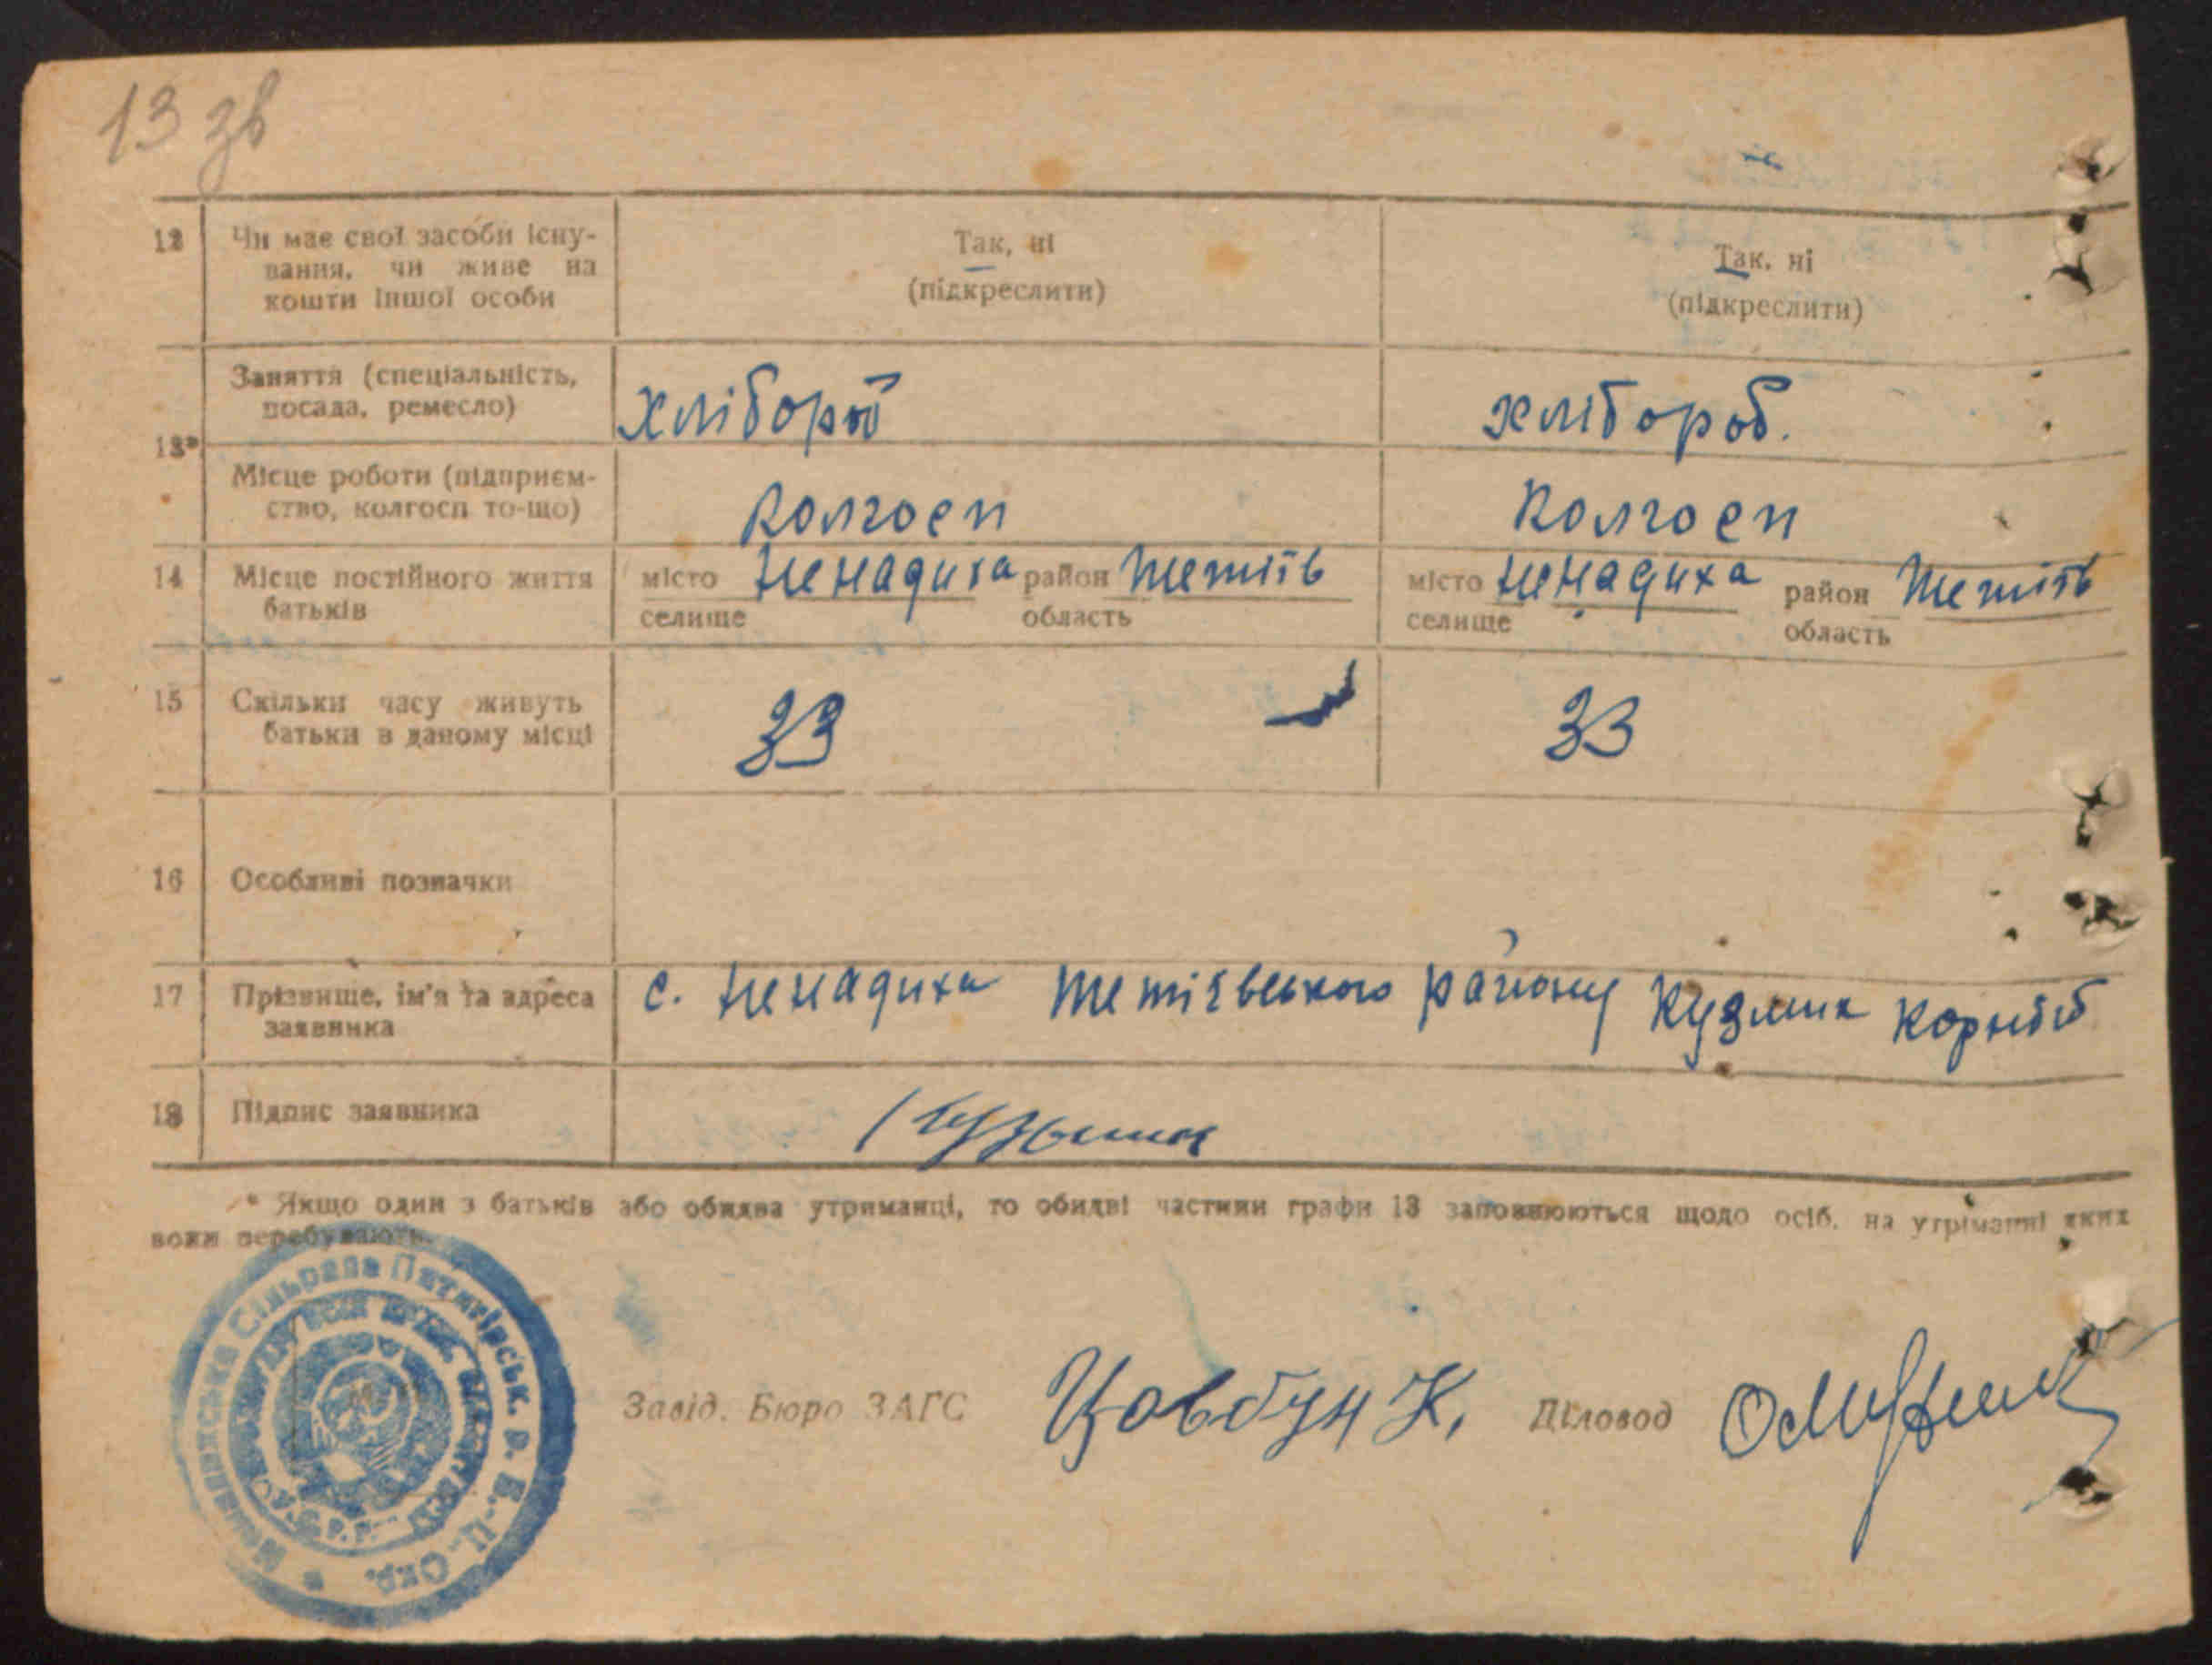 13 зв
12 Чи має свої засоби існу-
вання, чи живе на
кошти іншої особи
Так, ні
(підкреслити)
Так, ні
(підкреслити)
13*
Заняття (спеціальність,
посада, ремесло)
хлібороб
хлібороб.
Місце роботи (підприєм-
ство, колгосп то-що)
Колгосп
Колгосп
14 Місце постійного життя
батьків
місто Ненадиха район Тетіїв
селище область
місто Ненадиха район Тетіїв
селище область
15 Скільки часу живуть
батьки в даному місці
33
33
16 Особливі позначки
17 Прізвище, ім'я та адреса
заявника
с. Ненадиха Тетіївського району Кузмик Корній
18 Підпис заявника
* Якщо один з батьків або обидва утриманці, то обидві частини графи 13 заповнюються щодо осіб, на утріманні яких
вони перебувають.
Сільрада Пятигірськ. р. Б.-Ц. Окр.
У.С.Р.Р.
Завід. Бюро ЗАГС Цовбун К. Діловод